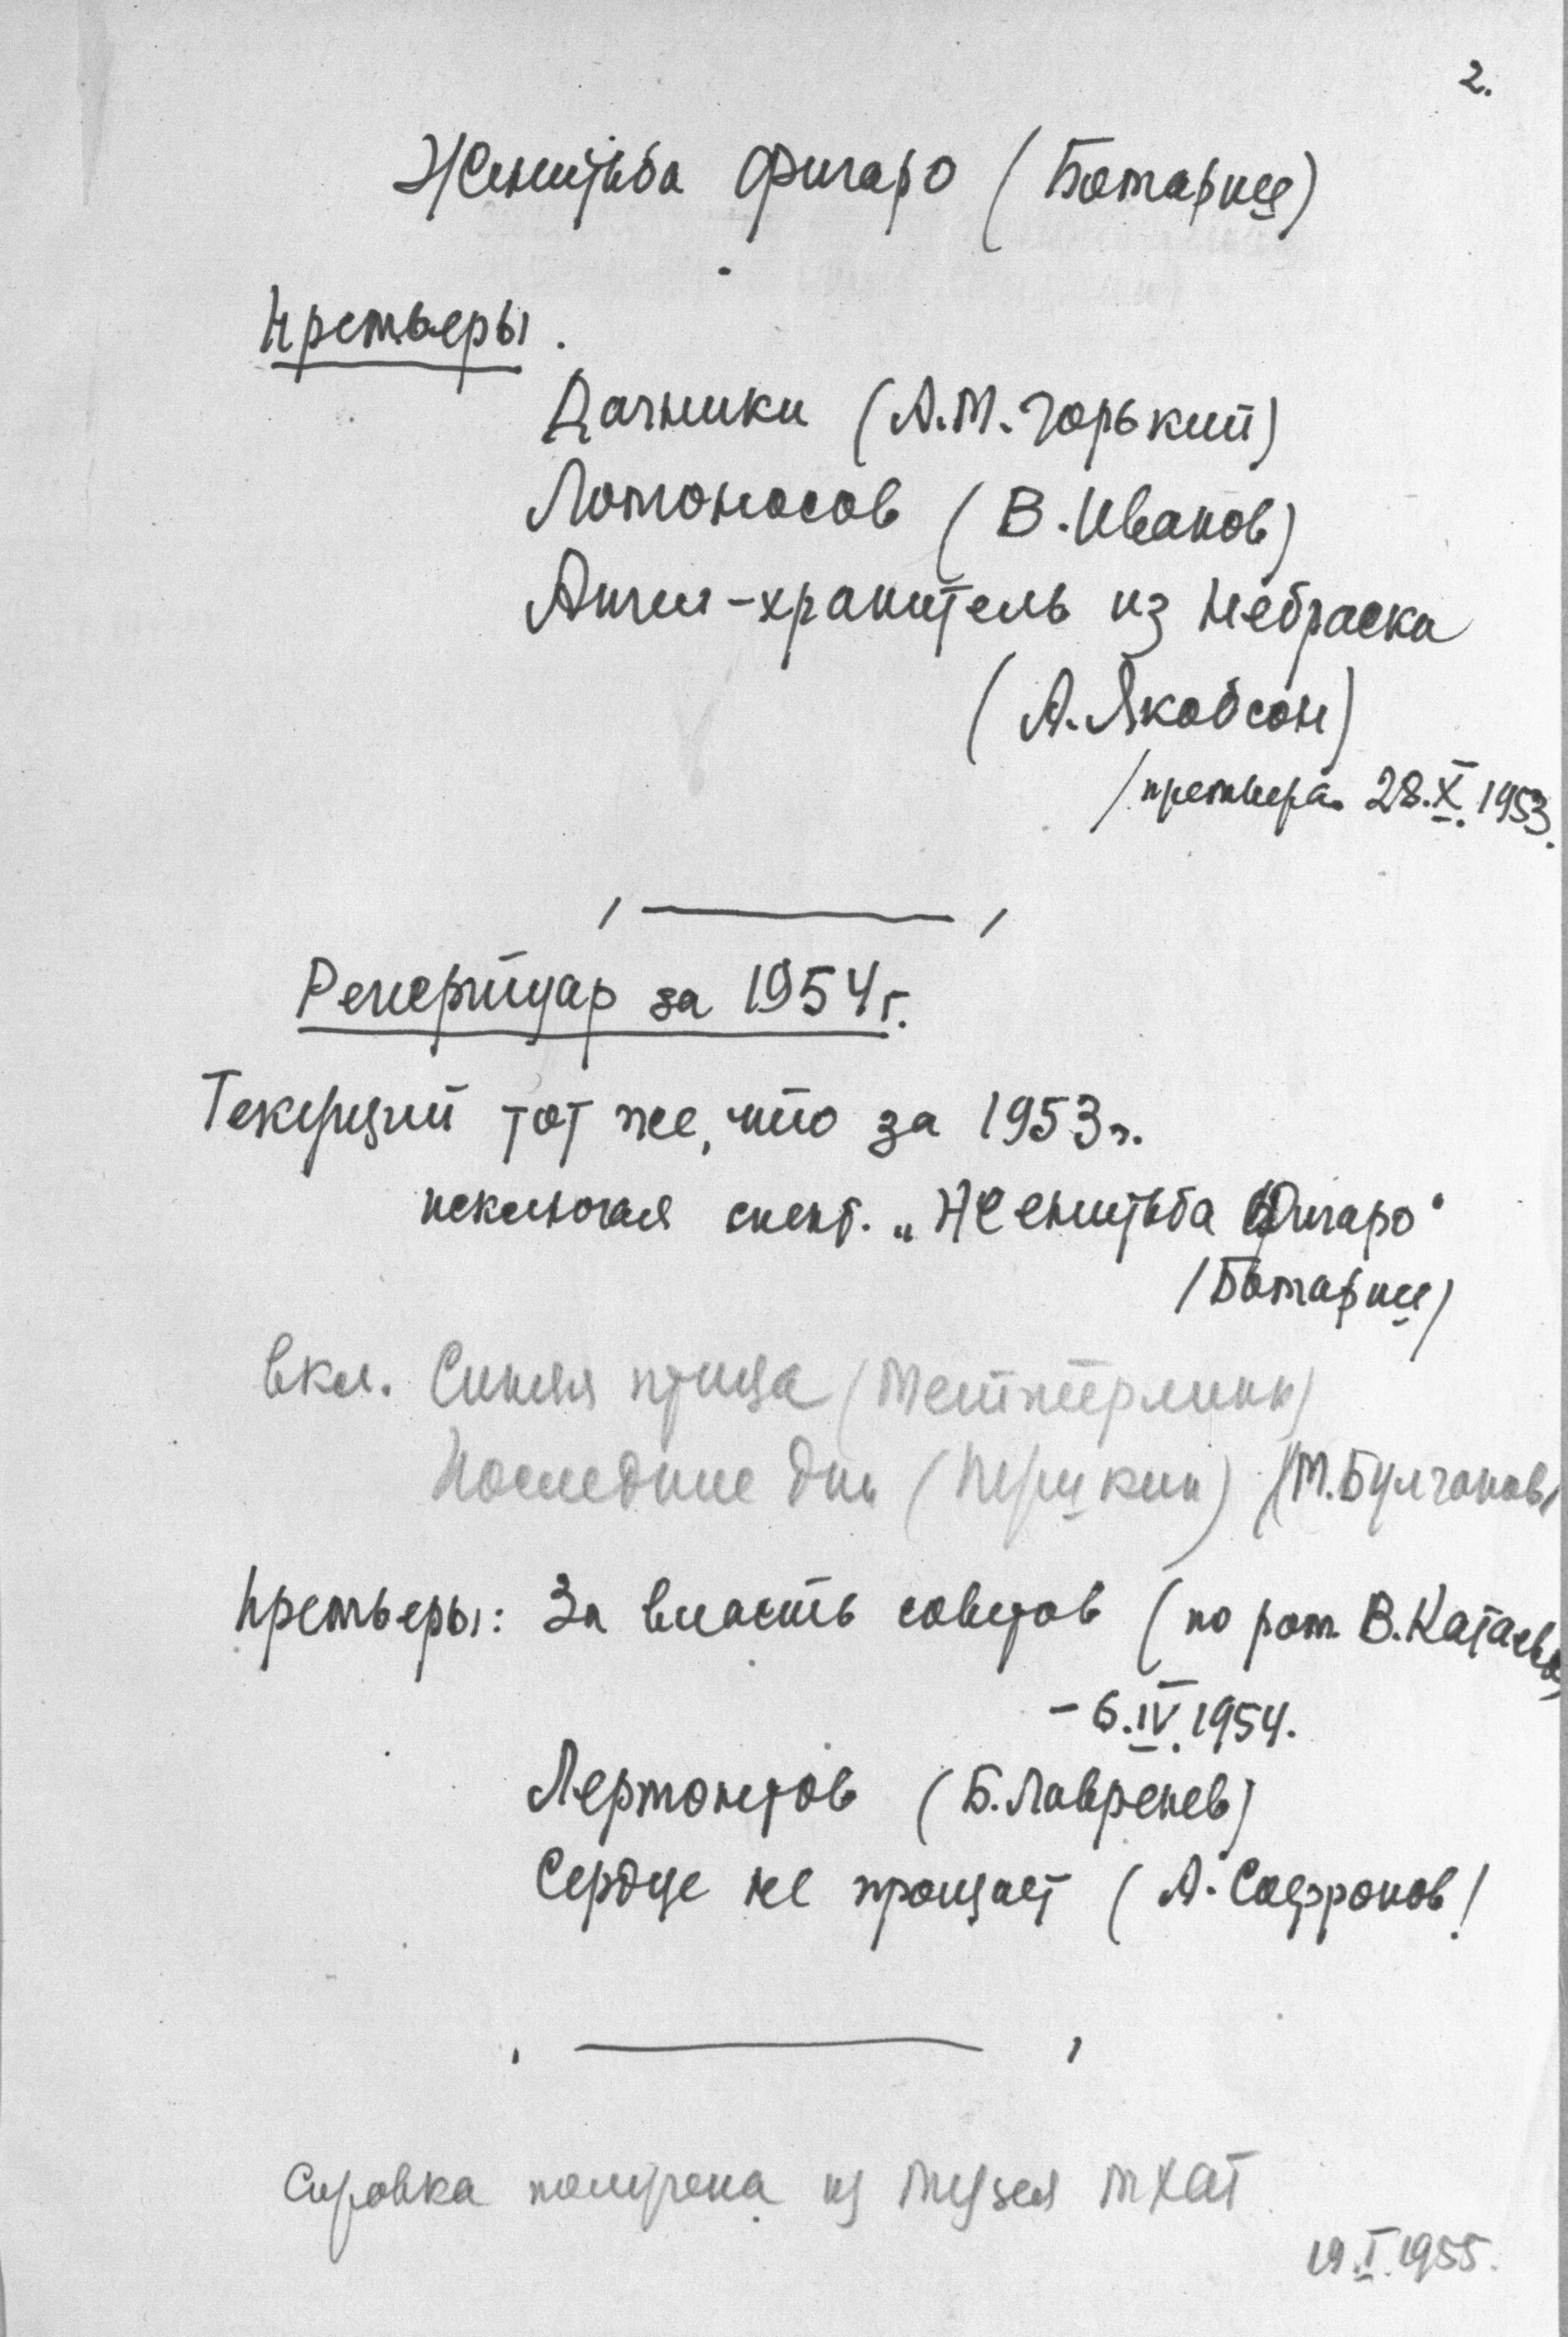 2.
Женитьба Фигаро (Бомарше)
Премьеры.
Дачники (А.М. Горький)
Ломоносов (В. Иванов)
Ангел-хранитель из Небраска
(А. Якобсон)
/премьера 28.X.1953.
Репертуар за 1954 г.
Текущий тот же, что за 1953 г.
исключая спект. „Женитьба Фигаро"
/Бомарше)
вкл. Синяя птица (Метерлинк)
Последние дни (Пушкин) /М. Булгаков/
Премьеры: За власть советов (по ром. В. Катаева
- 6.IV.1954.
Лермонтов (Б. Лавренев)
Сердце не прощает (А. Софронов/
Справка получена из музея МХАТ
19.I.1955.